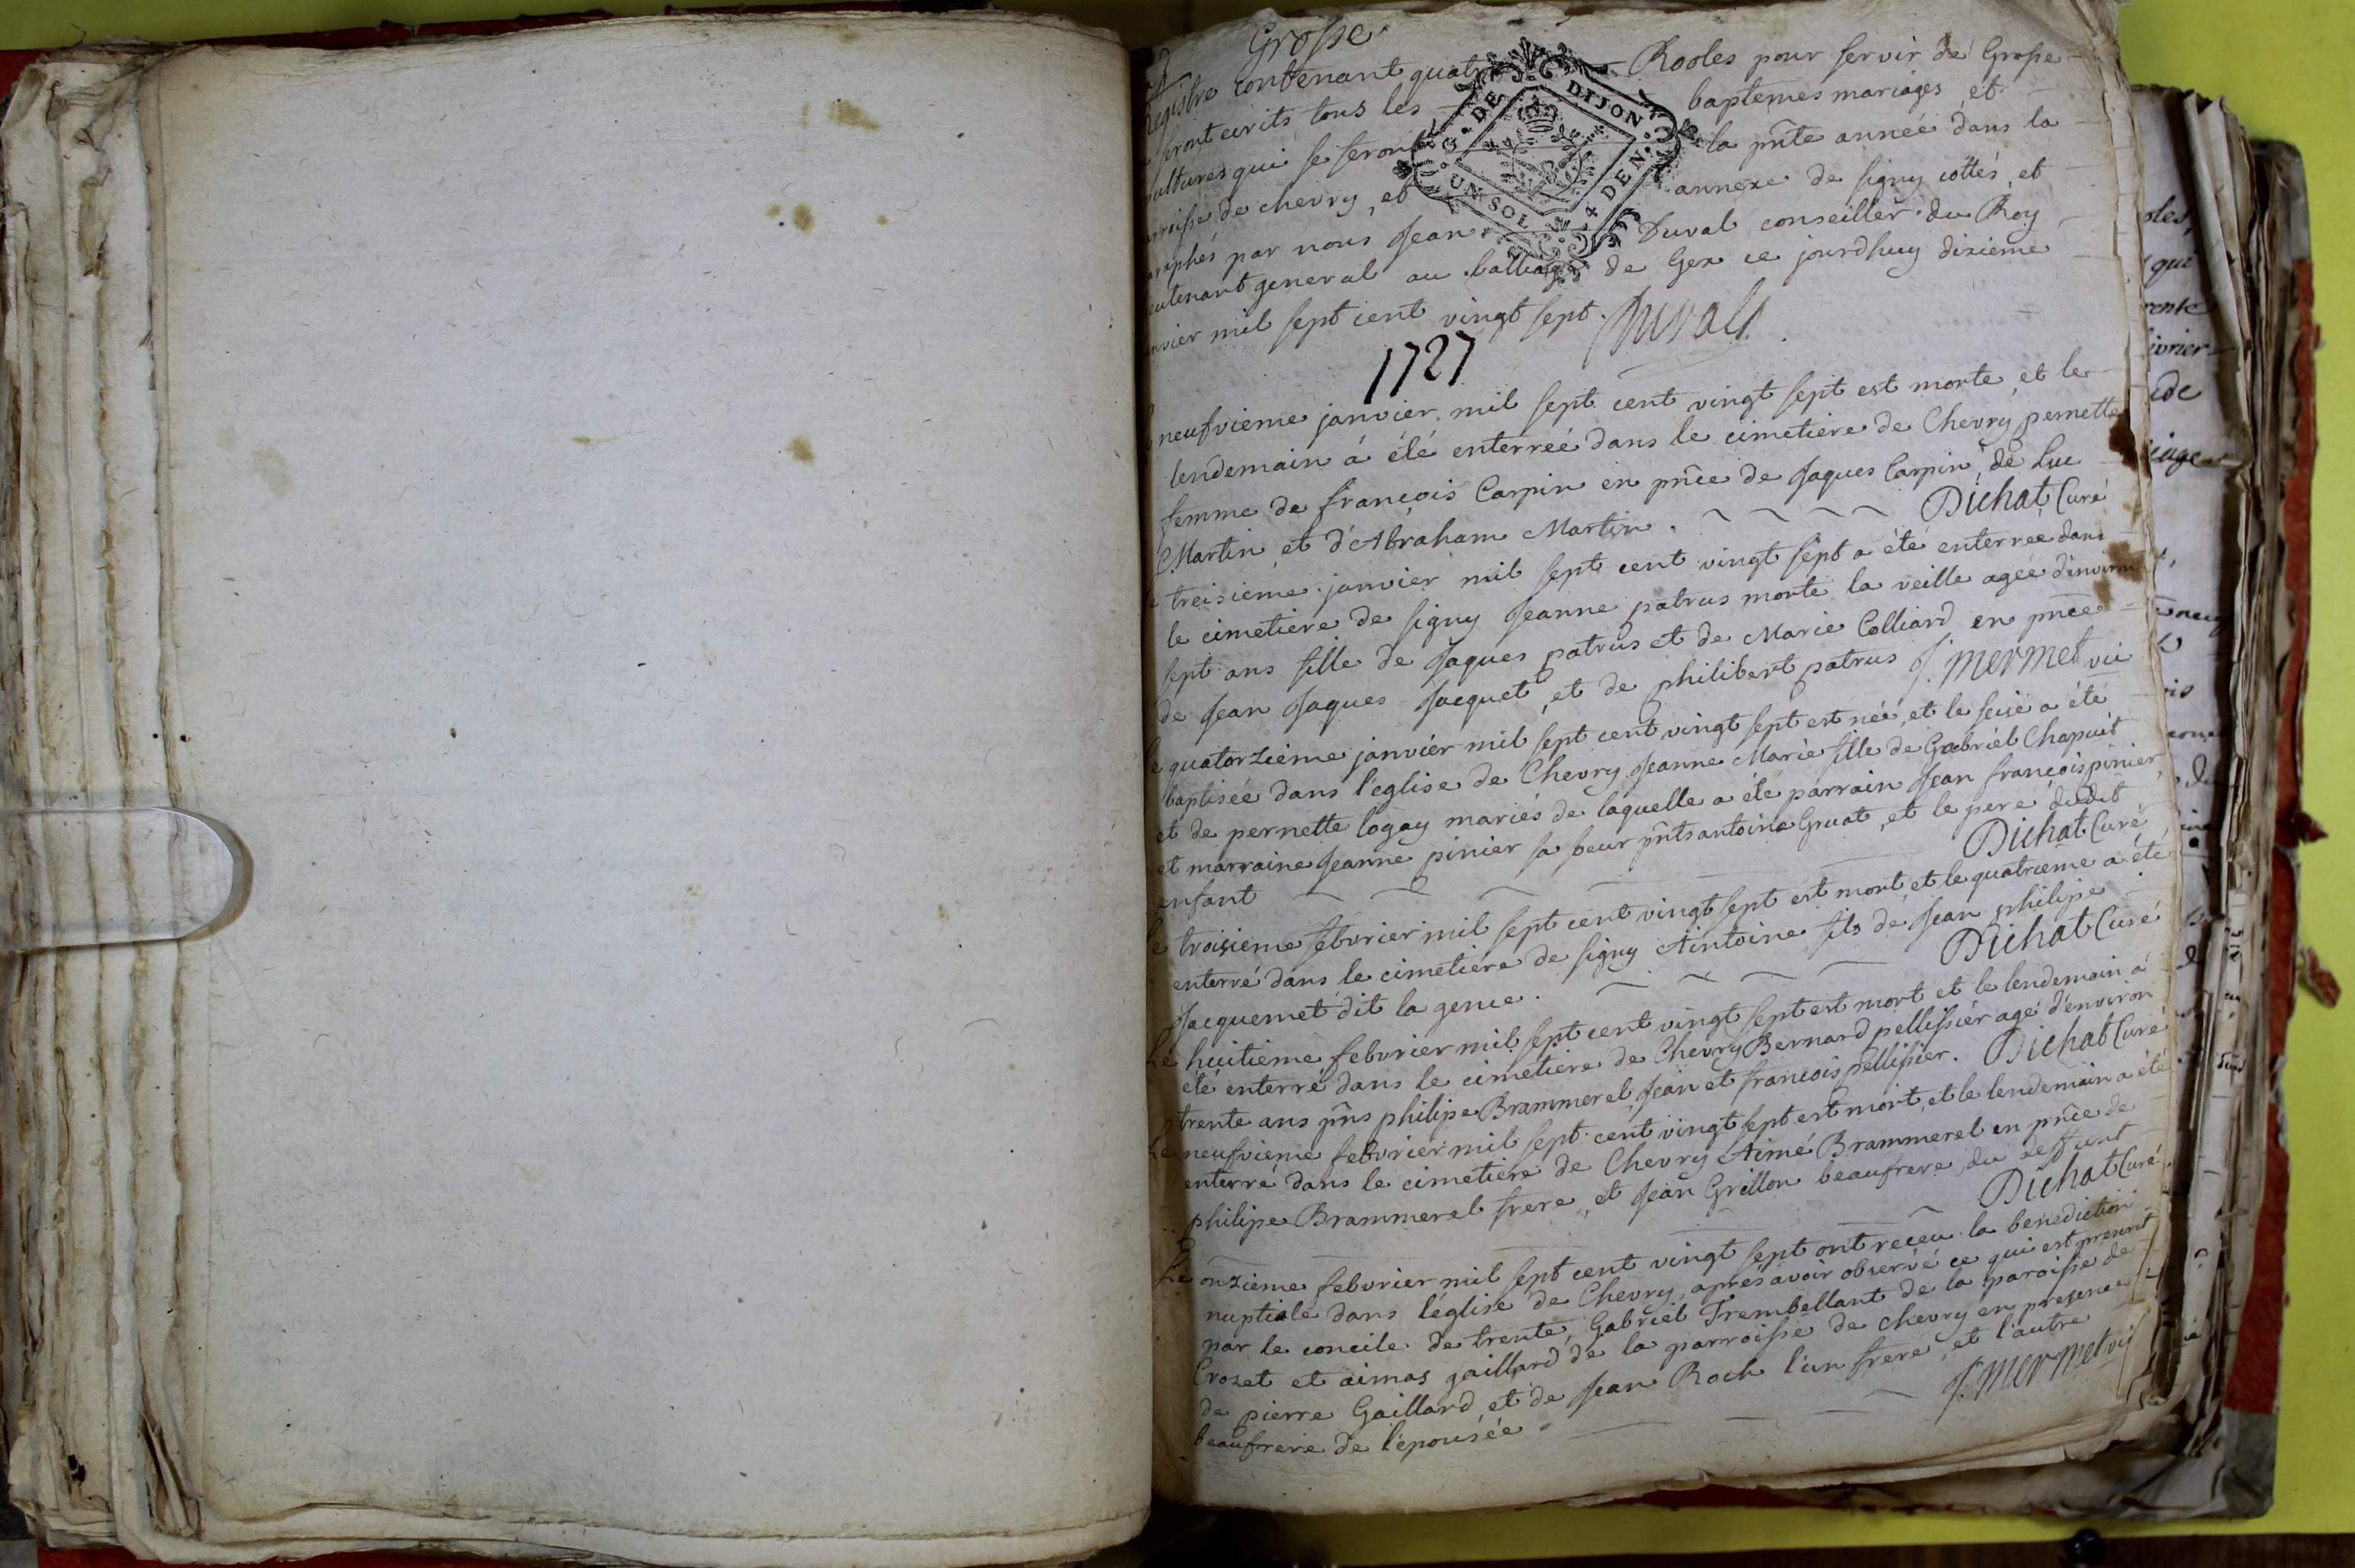 Grosse
Registre contenant quatre Rooles pour servir de Grosse
seront ecrits tous les baptemes mariages et
pultures qui se feront la pñte année dans la
arroisse de chevry, et annexe de signy cottés, et
araphés par nous Jean Duval conseiller du Roy
ieutenant general au balliage de Gex ce jourdhuy dixieme
anvier mil sept cent vingt sept. Duval
G.ᴬᴸ DE DIJON.
UN SOL 4 DEN.
1727
neufvieme janvier mil sept cent vingt sept est morte, et le
lendemain á été enterreé dans le cimetiere de Chevry pernette
femme de françois Carpin en pñce de Jaques Carpin, de Luc
Martin, et d'Abraham Martin. Dichat Curé
treisieme janvier mil sept cent vingt sept a été enterreé dans
le cimetiere de signy Jeanne patrus morte la veille agée d'environ
sept ans fille de Jaques patrus et de Marie Colliard en pñce
de Jean Jaques Jacquet, et de philibert patrus J. mermet vic
le quatorzieme janvier mil sept cent vingt sept est née, et le seize a été
baptisée dans l'eglise de Chevry Jeanne Marie fille de Gabriel Chapuit
et de pernette logay mariés de laquelle a été parrain Jean françois pinier,
et marraine Jeanne pinier sa seur pñts antoine Gruat, et le pere dudit
enfant Dichat Curé
le troisieme febvrier mil sept cent vingt sept est mort, et le quatrieme a été
enterré dans le cimetiere de signy Aintoine fils de Jean philipe
Jacquemet dit la genue. Dichat Curé
Le huitieme febvrier mil sept cent vingt sept est mort et le lendemain á
été enterré dans le cimetiere de Chevry Bernard pellissier agé d'environ
trente ans pñs philipe Brammerel, Jean et francois pellissier. Dichat Curé
Le neufvieme febvrier mil sept cent vingt sept est mort, et le lendemain a été
enterré dans le cimetiere de Chevry Aimé Brammerel en pñce de
philipe Brammerel frere, et Jean Grillon beaufrere du deffunt
Dichat Curé
Le onzieme febvrier mil sept cent vingt sept ont receu la benediction
nuptiale dans l'église de Chevry, aprés avoir observé ce qui est prescrit
par le concile de trente, Gabriel Trembellant de la paroisse de
Crozet et aimas gaillard de la parroisse de chevry en presence
de pierre Gaillard, et de Jean Roch l'un frere, et l'autre
beaufrere de l'épousée. J. mermet vic